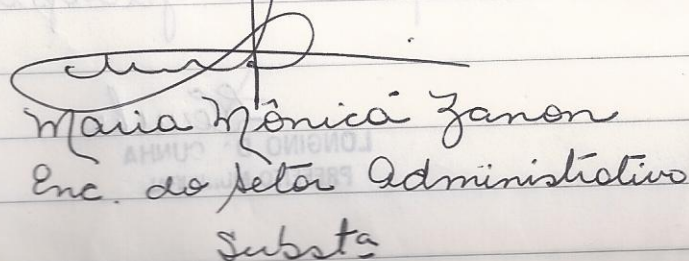 Maria Mônica Zanon
Enc. do setor Administrativo
Substª